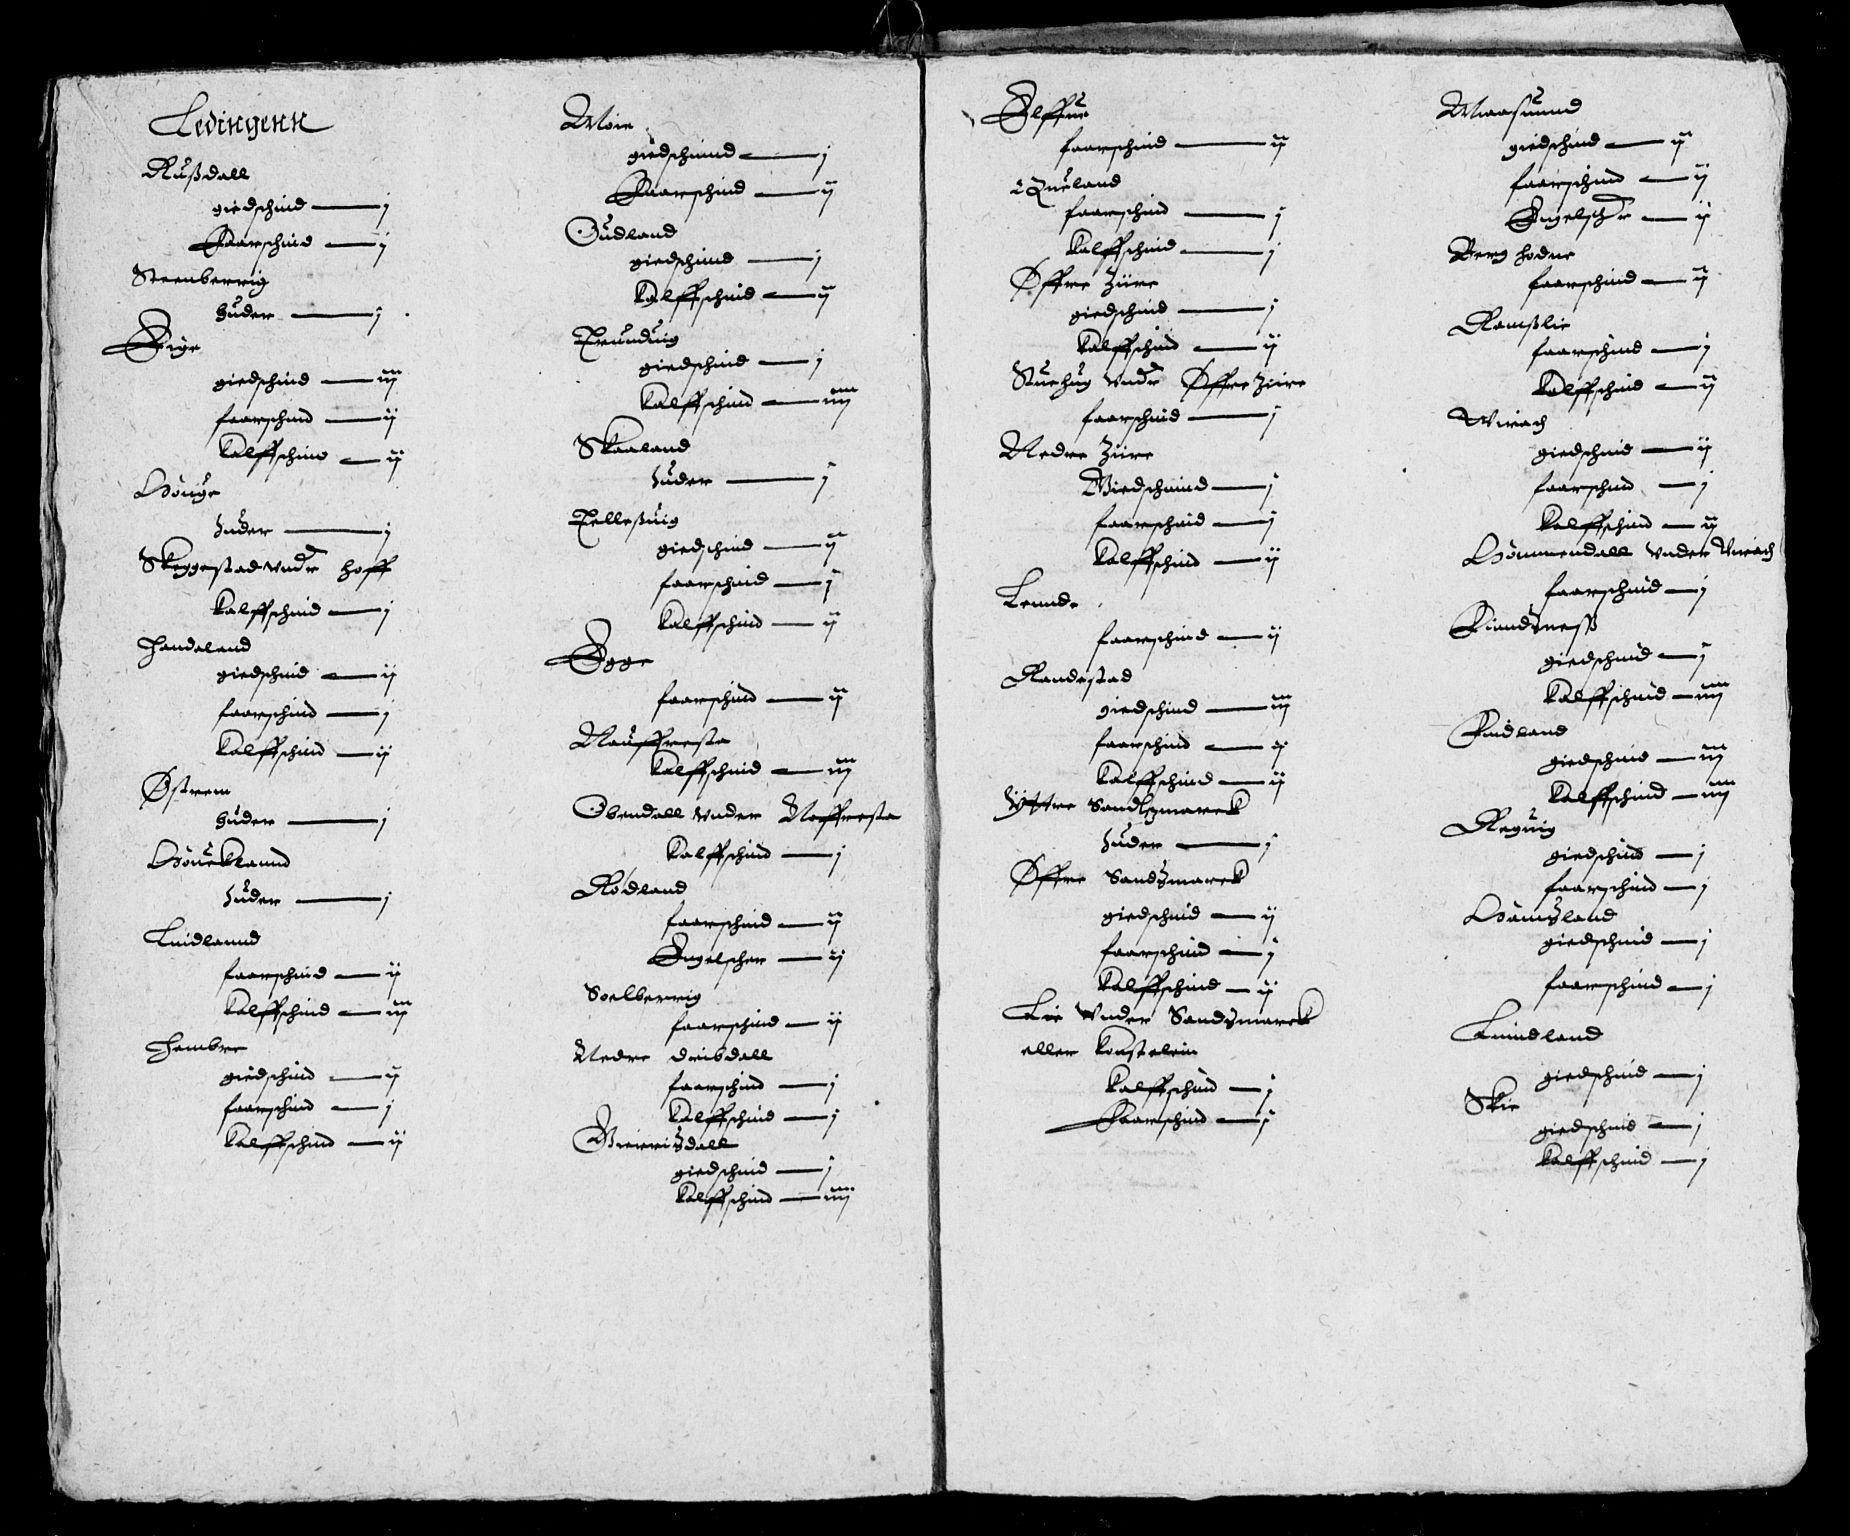 Ledingenn
Rußdall
giedschind — j
Faarschind — j
Steenberrig
huder — j
Eige
giedschind — iij
faarschind — ij
kalffschind — ij
Høuge
huder — j
Skeggestad vndr Hoff
kalffschind — j
Handeland
giedschind — ij
faarschind — j
kalffschind — ij
Østrem
huder — j
Høuekland
huder — j
Luidlannd
faarschind — ij
kalffschind — iij
Hambre
giedschind — ij
faarschind — j
kalffschind — ij
Moie
giedschinnd — j
Faarschind — ij
Øudland
giedschind — j
kalffschind — ij
Trunduig
giedschind — j
kalffschind — iiij
Skaaland
huder — j
Telleßuig
giedschind — ij
faarschind — j
kalffschind — ij
Egge
faarschind — ij
Nauffresta
kalffschind — iij
Obendall vnder Naffresta
kalffschind — j
Rødland
faarschind — ij
Engelscher — ij
Soelberrig
faarschind — ij
Nedre Dribdall
faarschind — j
kalffschind — j
giedschind — j
kalffschind — iiij
faarschind — ij
Queland
faarschind — j
kalffschind — j
Øffre Ziire
giedschind — j
kalffschind — ij
Stuehug vndr Øffre Ziire
faarschind — j
Nedre Ziire
Giedschinnd — j
faarschind — j
kalffschind — ij
Lennde
faarschind — ij
Randestad
giedschind — iij
faarschind — ij
kalffschind — ij
Yttre Sandszmarck
huder — j
Øffre Sandszmarck
giedschind — ij
faarschind — j
kalffschind — ij
Lie vnder Sandszmarck
eller
kalffschind — j
Faarschind — j
giedschind — ij
faarschind — ij
Engelschr — ij
Berg
faarschind — ij
Ramßlie
faarschind — j
kalffschind — ij
Virach
giedschind — ij
faarschind — j
kalffschind — ij
Hømmendall vnder Virach
faarschind — j
giedschind — j
kalffschind — iiij
Findland
giedschind — iij
kalffschind — iiij
Reguig
giedschind — j
faarschind — j
Hamszland
giedschind — j
faarschind — j
giedschind — j
Skie
giedschind — j
kalffschind — j